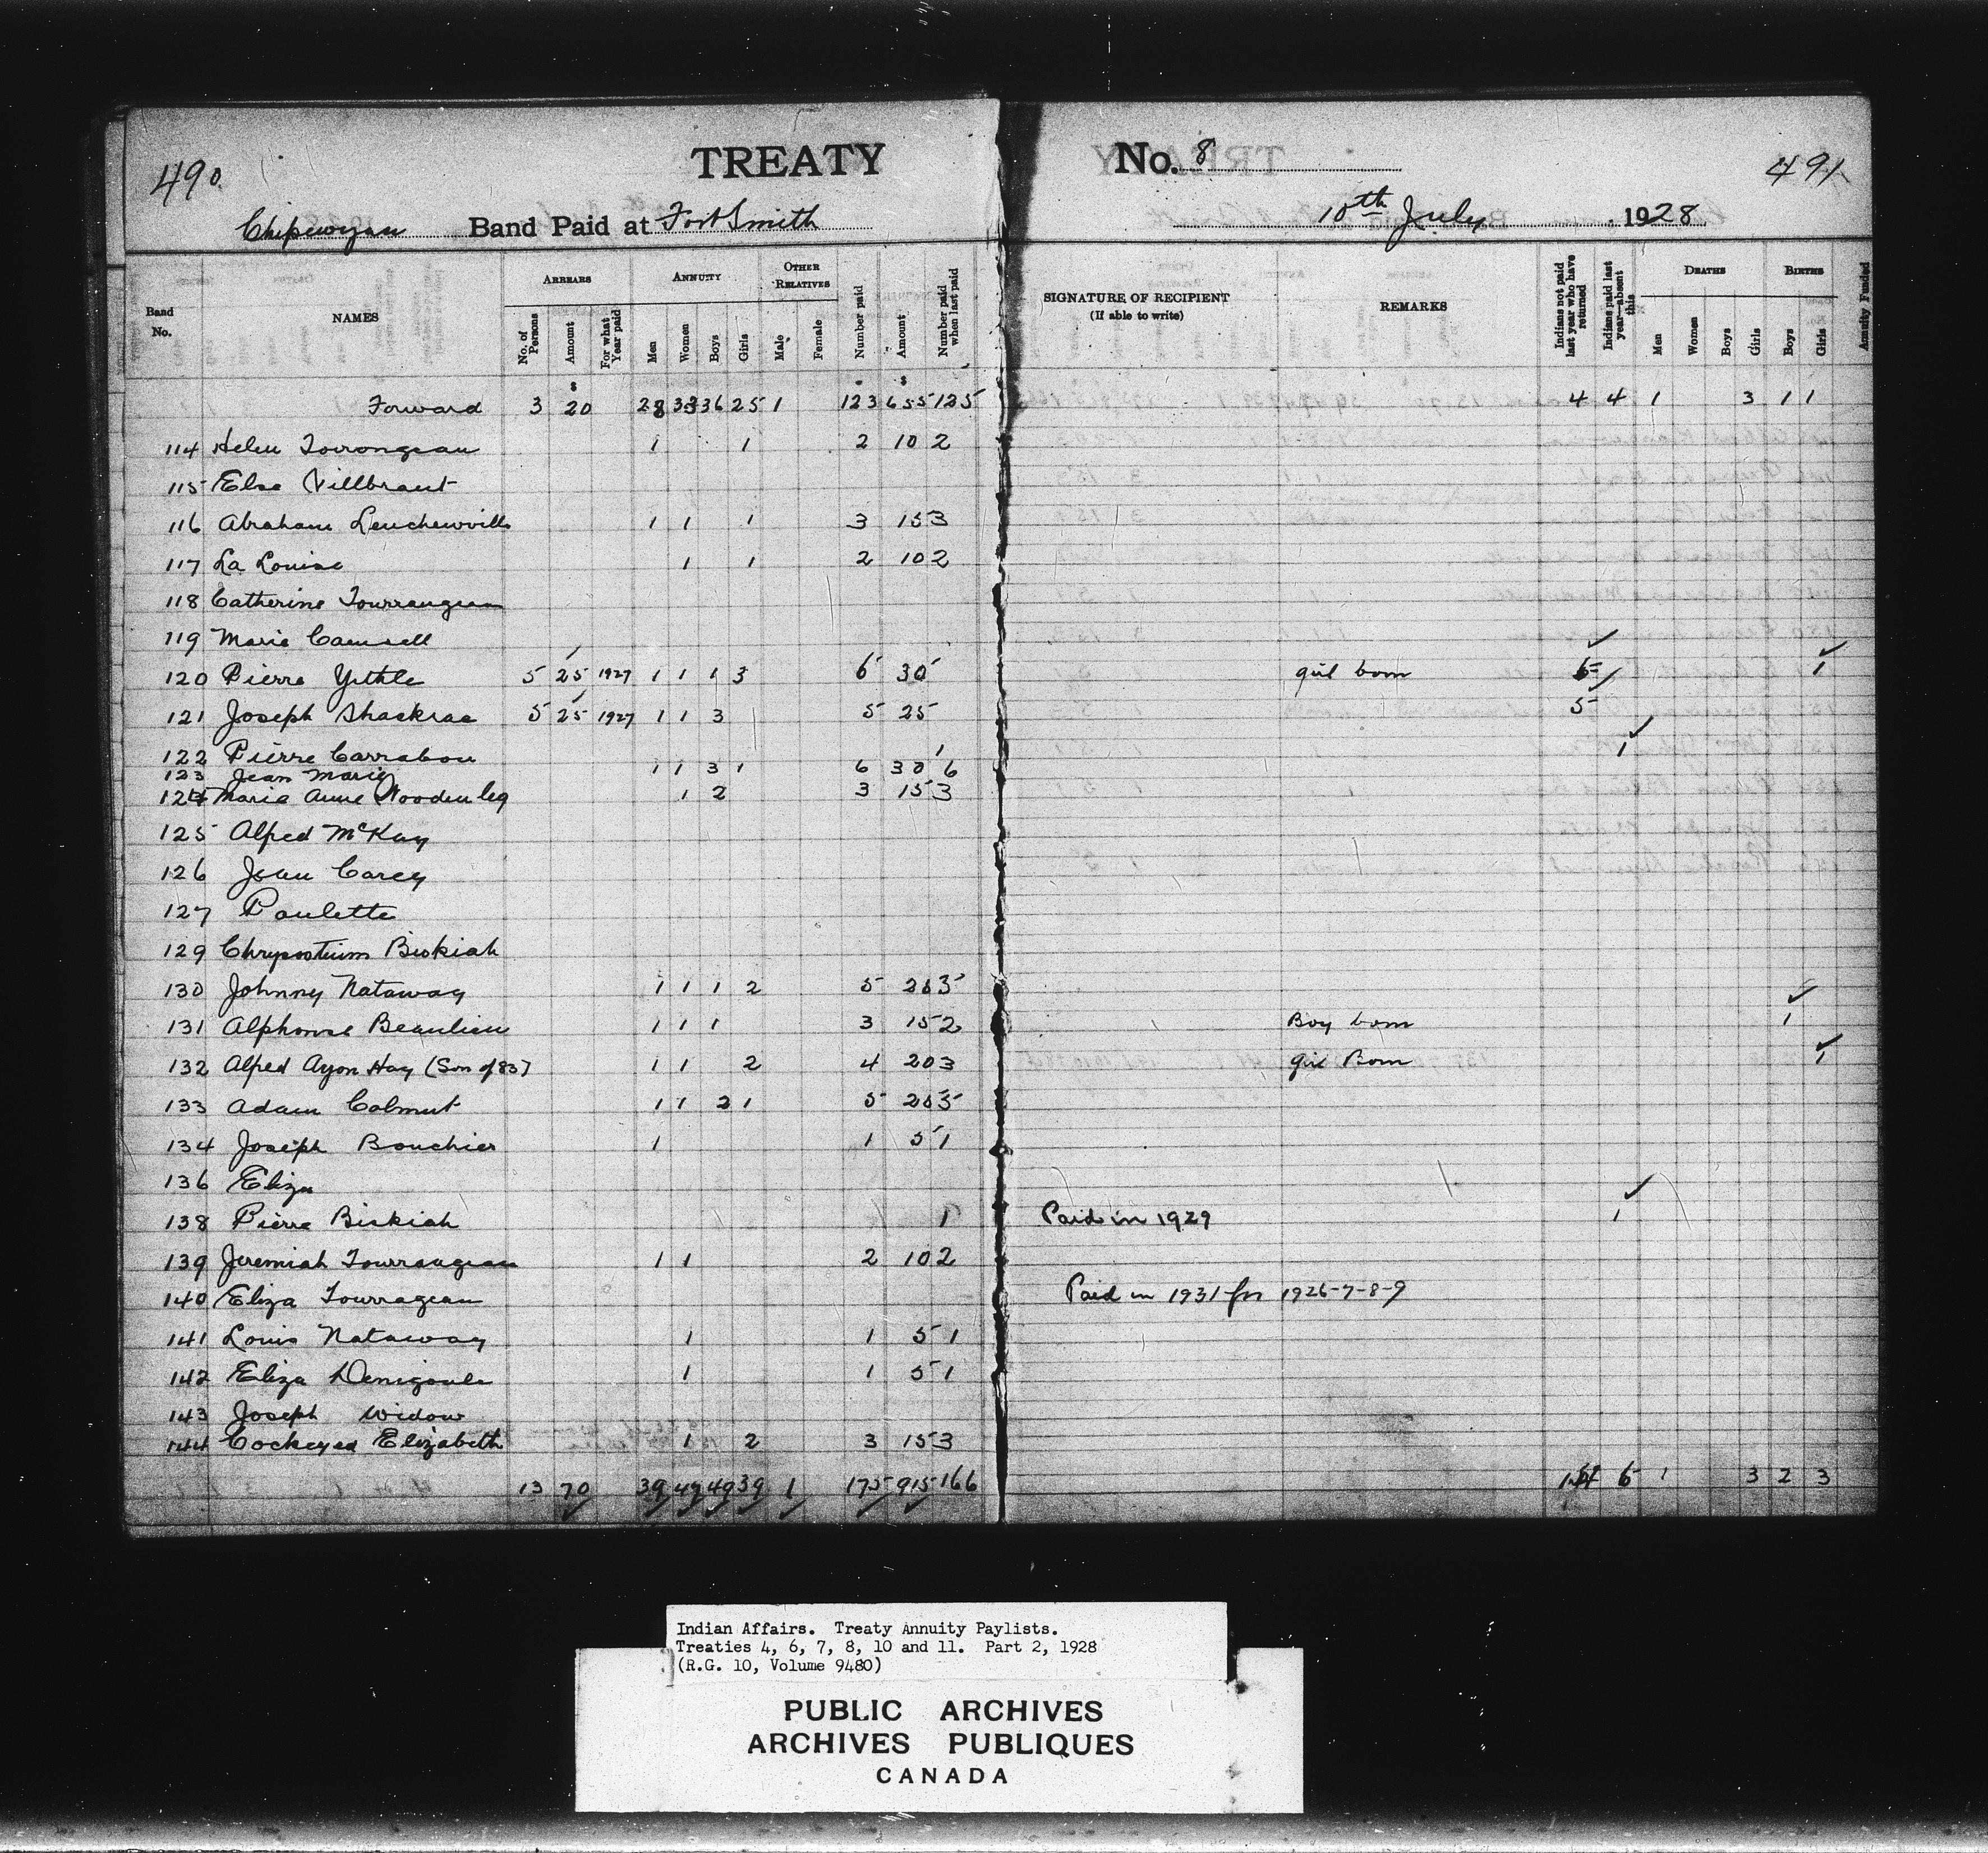 490. TREATY No. 8 491
Chipewyan Band Paid at Fort Smith 10th July 1928
Band No. NAMES ARREARS ANNUITY OTHER RELATIVES Number paid Amount Number paid when last paid SIGNATURE OF RECIPIENT (If able to write) REMARKS Indians not paid last year who have returned Indians paid last year—absent this DEATHS BIRTHS Annuity Funded
No. of Persons Amount For what Year paid Men Women Boys Girls Male Female Men Women Boys Girls Boys Girls
$ $
Forward 3 20 28 33 36 25 1 123 655 125 4 4 1 3 1 1
114 Helen Tourongeau 1 1 2 10 2
115 Else Villbrant
116 Abraham 1 1 1 3 15 3
117 La Louise 1 1 2 10 2
118 Catherine Tourrangeau
119 Marie Camsell
120 Pierre Yethle 5 25 1927 1 1 1 3 6 30 girl born 5 1
121 Joseph Shaekrae 5 25 1927 1 1 3 5 25 5
122 Pierre Carrabou 1 1
123 Jean Marie 1 1 3 1 6 30 6
124 Marie Anne Wooden leg 1 2 3 15 3
125 Alfred McKay
126 Jean Carey
127 Paulette
129 Chrysostium Biskiah
130 Johnny Nataway 1 1 1 2 5 25 5
131 Alphonse Beaulieu 1 1 1 3 15 2 Boy born 1
132 Alfred Ayon Hay (Son of 83) 1 1 2 4 20 3 girl Born 1
133 Adam Calmut 1 1 2 1 5 25 5
134 Joseph Bouchier 1 1 5 1
136 Eliza
138 Pierre Biskiah 1 Paid in 1929 1
139 Jeremiah Tourrangeau 1 1 2 10 2
140 Eliza Tourrageau Paid in 1931 for 1926-7-8-9
141 Louis Nataway 1 1 5 1
142 Eliza Denigoule 1 1 5 1
143 Joseph Widow
144 Cockeyed Elizabeth 1 2 3 15 3
13 70 39 47 49 39 1 175 915 166 14 6 1 3 2 3
Indian Affairs. Treaty Annuity Paylists.
Treaties 4, 6, 7, 8, 10 and 11. Part 2, 1928
(R.G. 10, Volume 9480)
PUBLIC ARCHIVES
ARCHIVES PUBLIQUES
CANADA